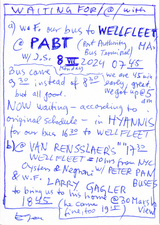 WAITING FOR / @ / with
a) w+f our bus to WELLFLEET
@ PABT (Port Authority Bus Terminal) MA.
w/J.S. 8 VII 2024 07 45
(Monday)
Bus came 9 30 instead of 8 30 we are 45 min early, great
but all good. we got up 5 am
NOW waiting - according to
original schedule - in HYANNIS
for our bus 16 30 to WELLFLEET
b) @ VAN RENSSLAERS 17 30
WELLFLEET = 10 hrs from NYC
Oysters & Negroni w/ PETER PAN BUSES
& w.f. LARRY GAGLER
to bring us to his home @ 30 Marsh View
18 45 (he came fine, too 19 15)